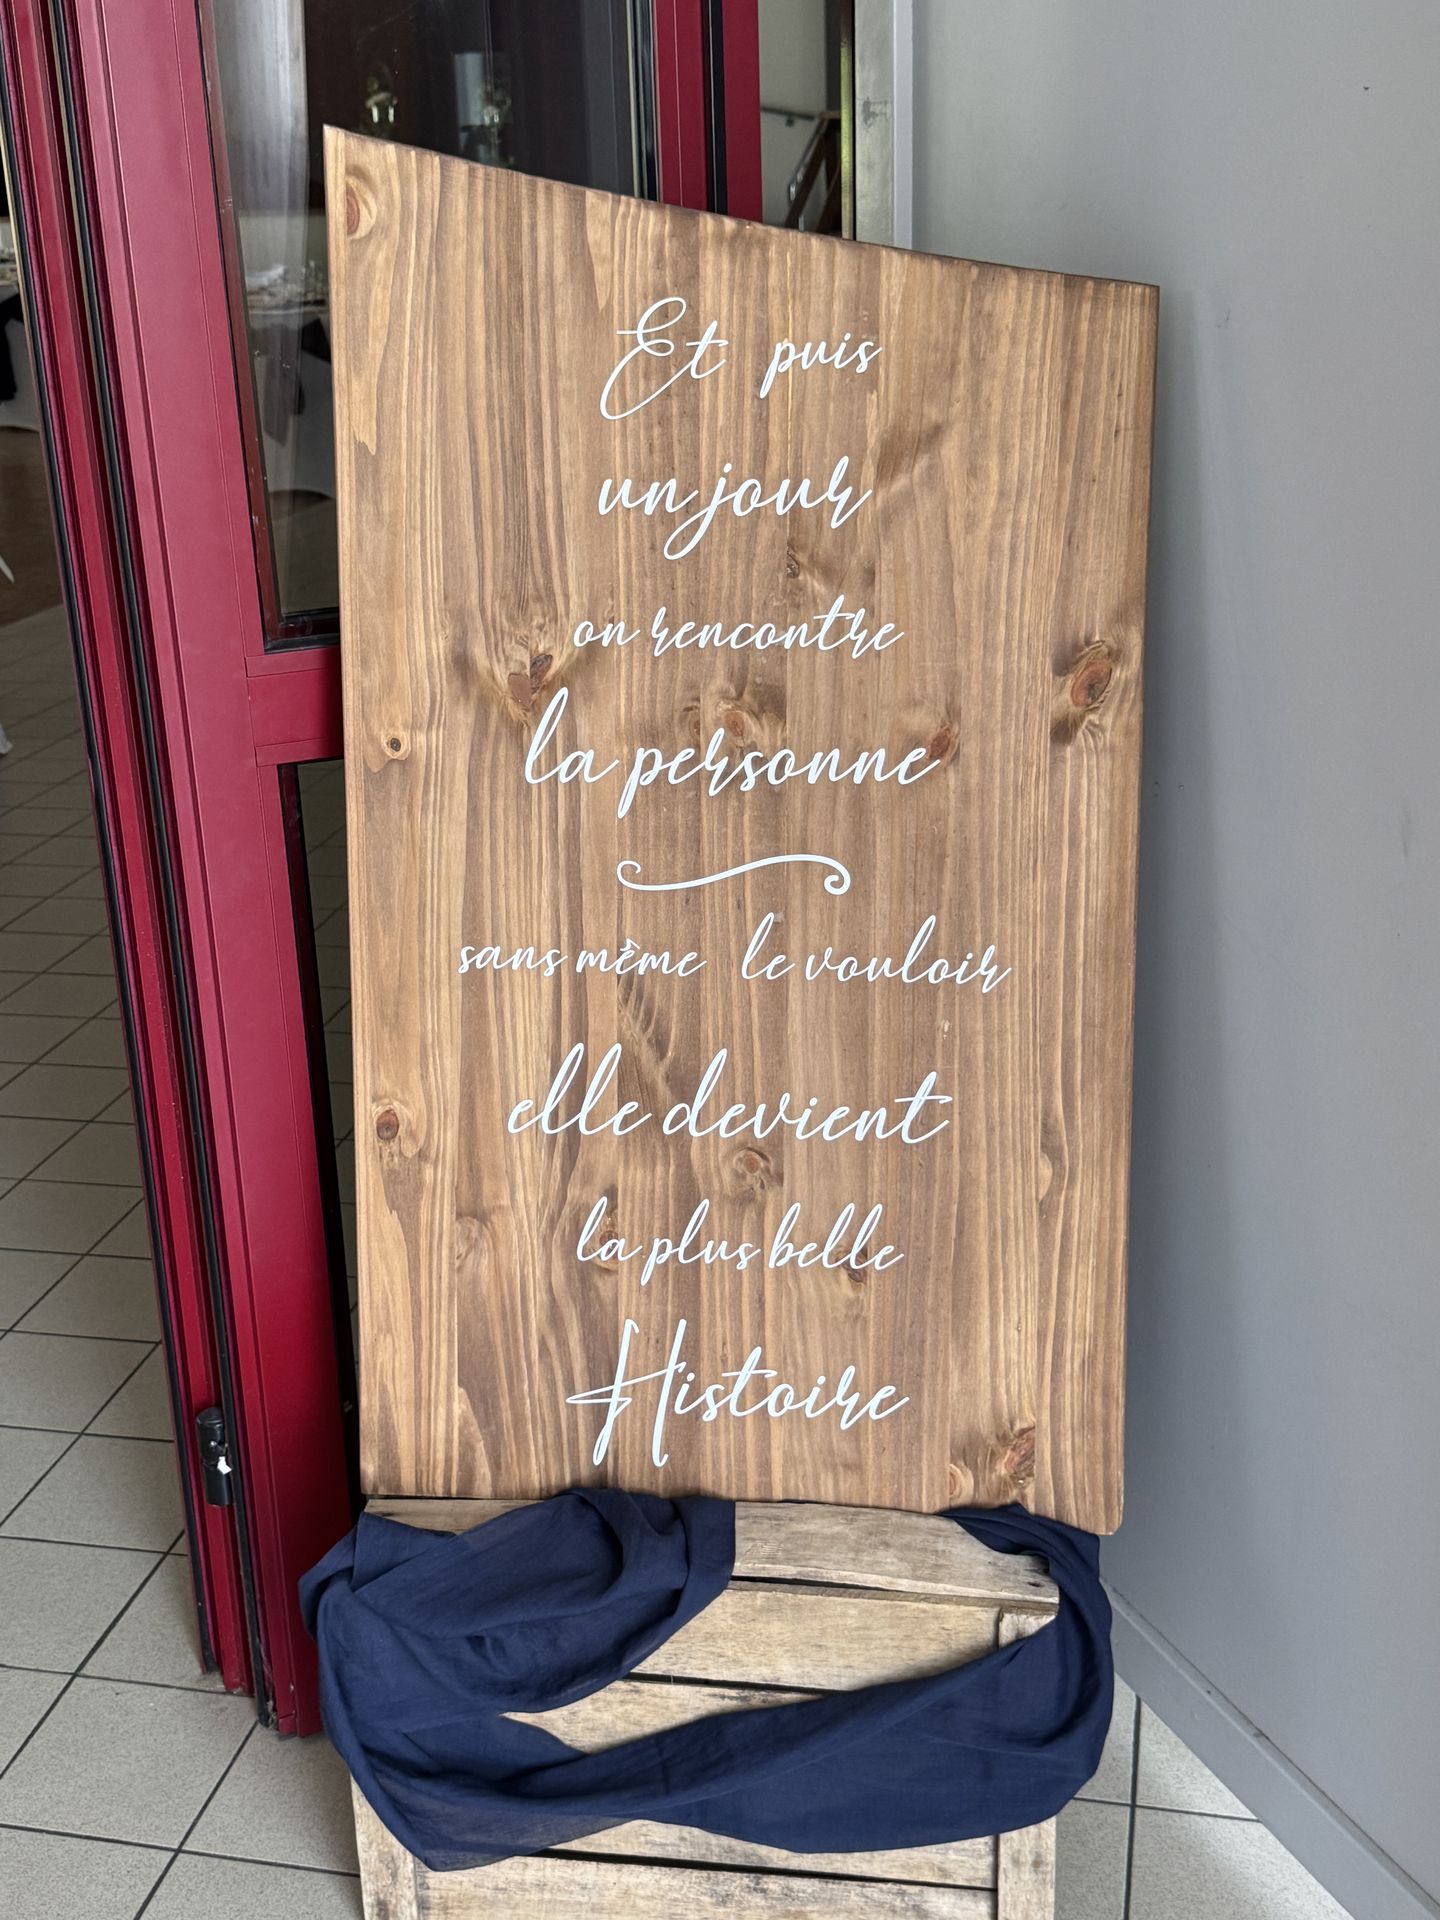 Et puis
un jour
on rencontre
la personne
sans même le vouloir
elle devient
la plus belle
Histoire